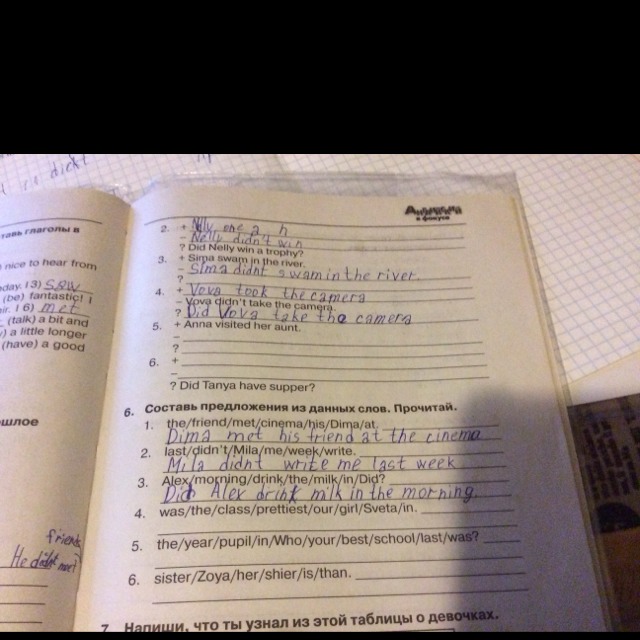 тавь глаголы в
nice to hear from
day. (3) saw
(be) fantastic! I
ir. (6) met
(talk) a bit and
) a little longer
(have) a good
ошлое
friend
He didn't meet
Английский
в фокусе
2. + Nelly a
– Nelly didn't win
? Did Nelly win a trophy?
3. + Sima swam in the river.
– Sima didnt swam in the river.
?
4. + Vova took the camera
– Vova didn't take the camera.
? Did Vova take the camera
5. + Anna visited her aunt.
–
?
6. +
–
? Did Tanya have supper?
6. Составь предложения из данных слов. Прочитай.
1. the/friend/met/cinema/his/Dima/at.
Dima met his friend at the cinema
2. last/didn't/Mila/me/week/write.
Mila didnt write me last week
3. Alex/morning/drink/the/milk/in/Did?
Did Alex drink milk in the morning.
4. was/the/class/prettiest/our/girl/Sveta/in.
5. the/year/pupil/in/Who/your/best/school/last/was?
6. sister/Zoya/her/shier/is/than.
7. Напиши, что ты узнал из этой таблицы о девочках.